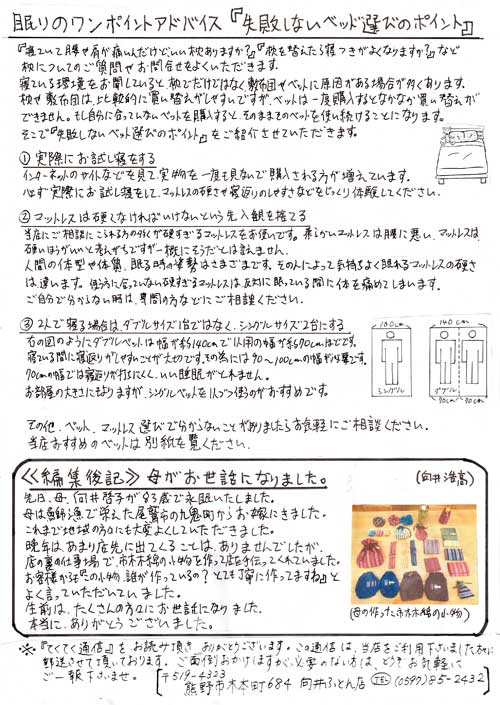 眠りのワンポイントアドバイス『失敗しないベッド選びのポイント』
『寝ていて腰や肩が痛いんだけどいい枕ありますか?』『枕を替えたら寝つきがよくなりますか?』など
枕についてのご質問やお問合せをよくいただきます。
寝ている環境をお聞していると、枕でだけではなく敷布団やベットに原因がある場合が多くあります。
枕や敷布団は、比較的に買い替えがしやすいですが、ベットは一度購入するとなかなか買い替えが
できません。もし自分に合っていないベットを購入すると、そのままそのベットを使い続けることになります。
そこで『失敗しないベット選びのポイント』をご紹介させていただきます。
① 実際にお試し寝をする
インターネットのサイトなどを見て、実物を一度も見ないで購入される方が増えています。
必ず実際にお試し寝をして、マットレスの硬さや寝返りのしやすさなどをじっくり体験してください。
② マットレスは硬くなければいけないという先入観を捨てる
当店にご相談にこられる方の多くが硬すぎるマットレスをお使いです。柔らかいマットレスは腰に悪い、マットレスは
硬いほうがいいと考えがちですが一概にそうだとは言えません。
人間の体型や体質、眠る時の姿勢はさまざまです。その人によって気持ちよく眠れるマットレスの硬さ
は違います。自分に合っていない硬すぎるマットレスは反対に眠っている間に体を痛めてしまいます。
ご自分で分からない時は、専門の方などにご相談ください。
③ 2人で寝る場合は、ダブルサイズ1台ではなく、シングルサイズ2台にする
右の図のようにダブルベットは幅が約140cmで1人用の幅が約70cmほどです。
寝ている間に寝返りがしやすいことが大切です。その為には90〜100cmの幅が必要です。
70cmの幅では寝返りが打ちにくく、いい睡眠がとれません。
お部屋の大きさにもよりますが、シングルベットを1人づつ使うのがおすすめです。
100cm
シングル
140cm
ダブル
70cm 70cm
その他、ベット、マットレス選びで分からないことがありましたらお気軽にご相談ください。
当店おすすめのベットは別紙を覧ください。
≪編集後記≫ 母がお世話になりました。
(向井浩高)
先日、母、向井啓子が83歳で永眠いたしました。
母は鰤漁で栄えた尾鷲市の九鬼町からお嫁にきました。
これまで地域の方々にも大変よくしていただきました。
晩年は、あまり店先に出てくることは、ありませんでしたが、
店の裏の仕事場で、市木木綿の小物を作って店を手伝ってくれていました。
お客様からは『この小物、誰が作っているの?とても丁寧に作ってますね』と
よく言っていただいていました。
生前は、たくさんの方々にお世話になりました。
本当に、ありがとうございました。
(母の作った市木木綿の小物)
※『てくてく通信』をお読み頂き、ありがとうございます。この通信は、当店をご利用下さいました方に
郵送させて頂いております。ご面倒おかけしますが、必要のない方は、どうぞお気軽に
ご一報下さいませ。
〒519-4323
熊野市木本町684 向井ふとん店 TEL(0597)85-2432